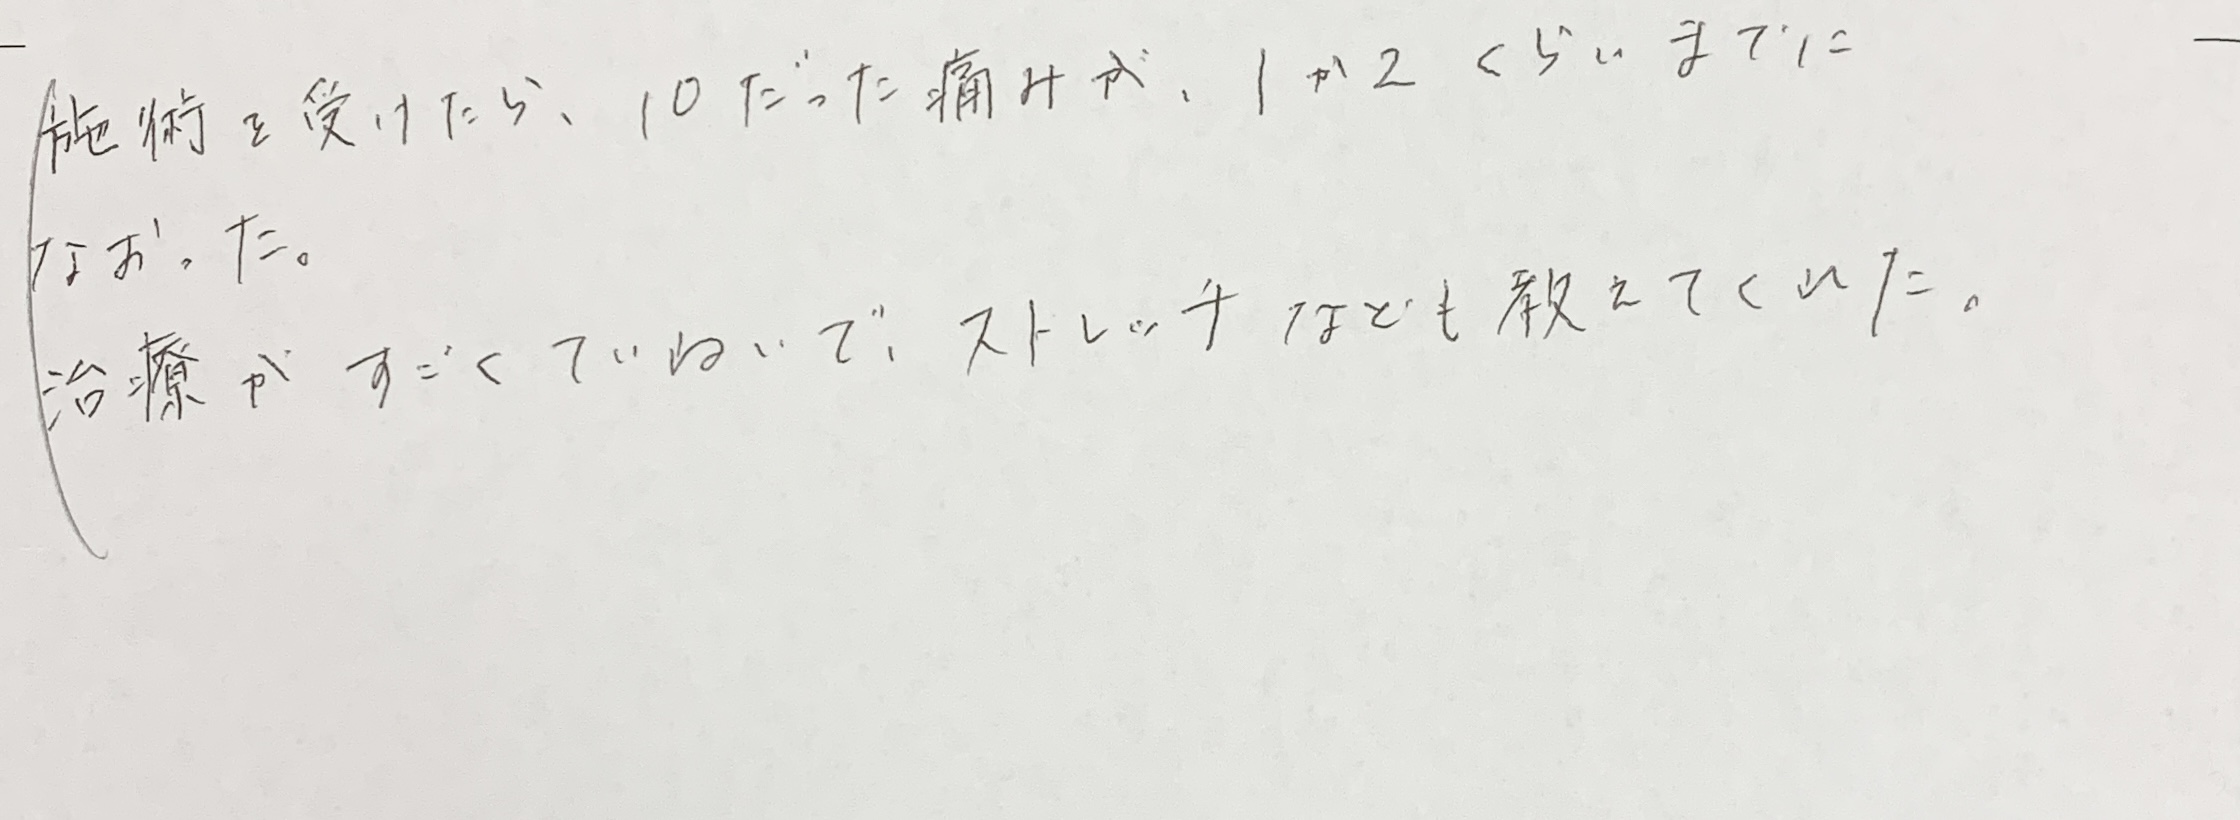 施術を受けたら、10だった痛みが、1か2くらいまでに
なおった。
治療がすごくていねいで、ストレッチなども教えてくれた。